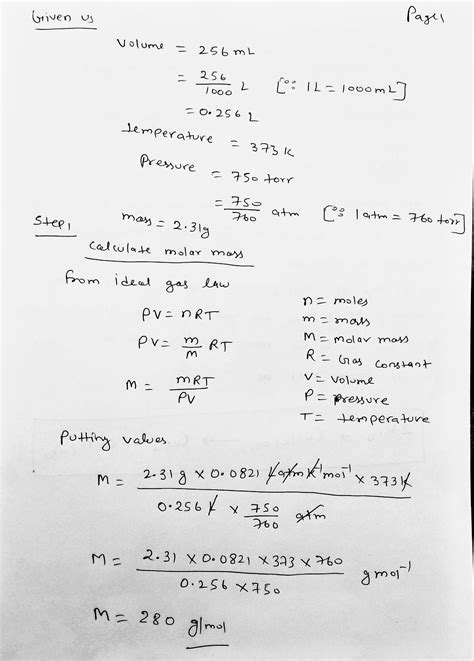 Given us
Page 1
Volume = 256 mL
= 256/1000 L [∵ 1L = 1000 mL]
= 0.256 L
temperature = 373 K
Pressure = 750 torr
= 750/760 atm [∵ 1 atm = 760 torr]
mass = 2.31g
Step 1
Calculate molar mass
from ideal gas law
PV = nRT
PV = m/M RT
M = mRT/PV
n = moles
m = mass
M = molar mass
R = Gas constant
V = volume
P = pressure
T = temperature
Putting values
M = 2.31 g × 0.0821 L atm K⁻¹ mol⁻¹ × 373 K / 0.256 L × 750/760 atm
M = 2.31 × 0.0821 × 373 × 760 / 0.256 × 750 g mol⁻¹
M = 280 g/mol